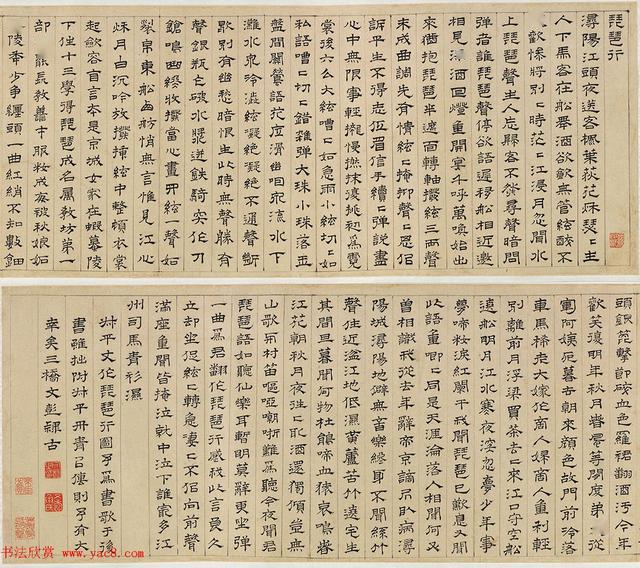 琵琶行
潯陽江頭夜送客楓葉荻花秋瑟〻主
人下馬客在船舉酒欲飲無管絃醉不
歡慘將別〻時茫〻江浸月忽聞水
上琵琶聲主人忘歸客不發尋聲暗問
彈者誰琵琶聲停欲語遲移船相近邀
相見添酒回燈重開宴千呼萬喚始出
來猶抱琵琶半遮面轉軸撥絃三兩聲
未成曲調先有情絃〻掩抑聲〻思似
訴平生不得志低眉信手續〻彈說盡
心中無限事輕攏慢撚抹復挑初為霓
裳後六么大絃嘈〻如急雨小絃切〻如
私語嘈〻切〻錯雜彈大珠小珠落玉
盤間關鶯語花底滑幽咽泉流水下
灘水泉冷澀絃凝絕凝絕不通聲暫
歇別有幽愁暗恨生此時無聲勝有
聲銀瓶乍破水漿迸鐵騎突出刀
鎗鳴曲終收撥當心畫四絃一聲如
裂帛東船西舫悄無言惟見江心
秋月白沉吟放撥插絃中整頓衣裳
起斂容自言本是京城女家在蝦蟇陵
下住十三學得琵琶成名屬教坊第一
部罷長教善才服妝成每被秋娘妬
陵年少爭纏頭一曲紅綃不知數鈿
頭銀篦擊節碎血色羅裙翻酒汚今年
歡笑復明年秋月春風等閒度弟從
軍阿姨死暮去朝來顏色故門前冷落
車馬稀老大嫁作商人婦商人重利輕
別離前月浮梁買茶去〻來江口守空船
遶船明月江水寒夜深忽夢少年事
夢啼妝淚紅闌干我聞琵琶已歎息又聞
此語重唧〻同是天涯淪落人相聞何必
曾相識我從去年辭帝京謫居臥病潯
陽城潯陽地僻無音樂終歲不聞絲竹
聲住近湓江地低濕黃蘆苦竹遶宅生
其間旦暮聞何物杜鵑啼血猿哀鳴春
江花朝秋月夜往〻取酒還獨傾豈無
山歌與村笛嘔啞嘲哳難為聽今夜聞君
琵琶語如聽仙樂耳暫明莫辭更坐彈
一曲為君翻作琵琶行感我此言良久
立却坐促絃〻轉急淒〻不似向前聲
滿座重聞皆掩泣就中泣下誰最多江
州司馬青衫濕
平丈作琵琶行圖予為書歌于後
書雖拙附平丹青以傳則予有大
幸矣三橋文彭隸古
书法欣赏 www.yac8.com